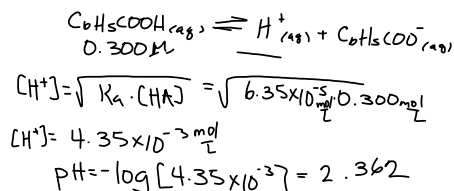 C6H5COOH(aq) ⇌ H+(aq) + C6H5COO-(aq)
0.300M
[H+]=√Ka·[HA] = √6.35x10^-5 mol/L·0.300mol/L
[H+]= 4.35x10^-3 mol/L
pH=-log[4.35x10^-3] = 2.362